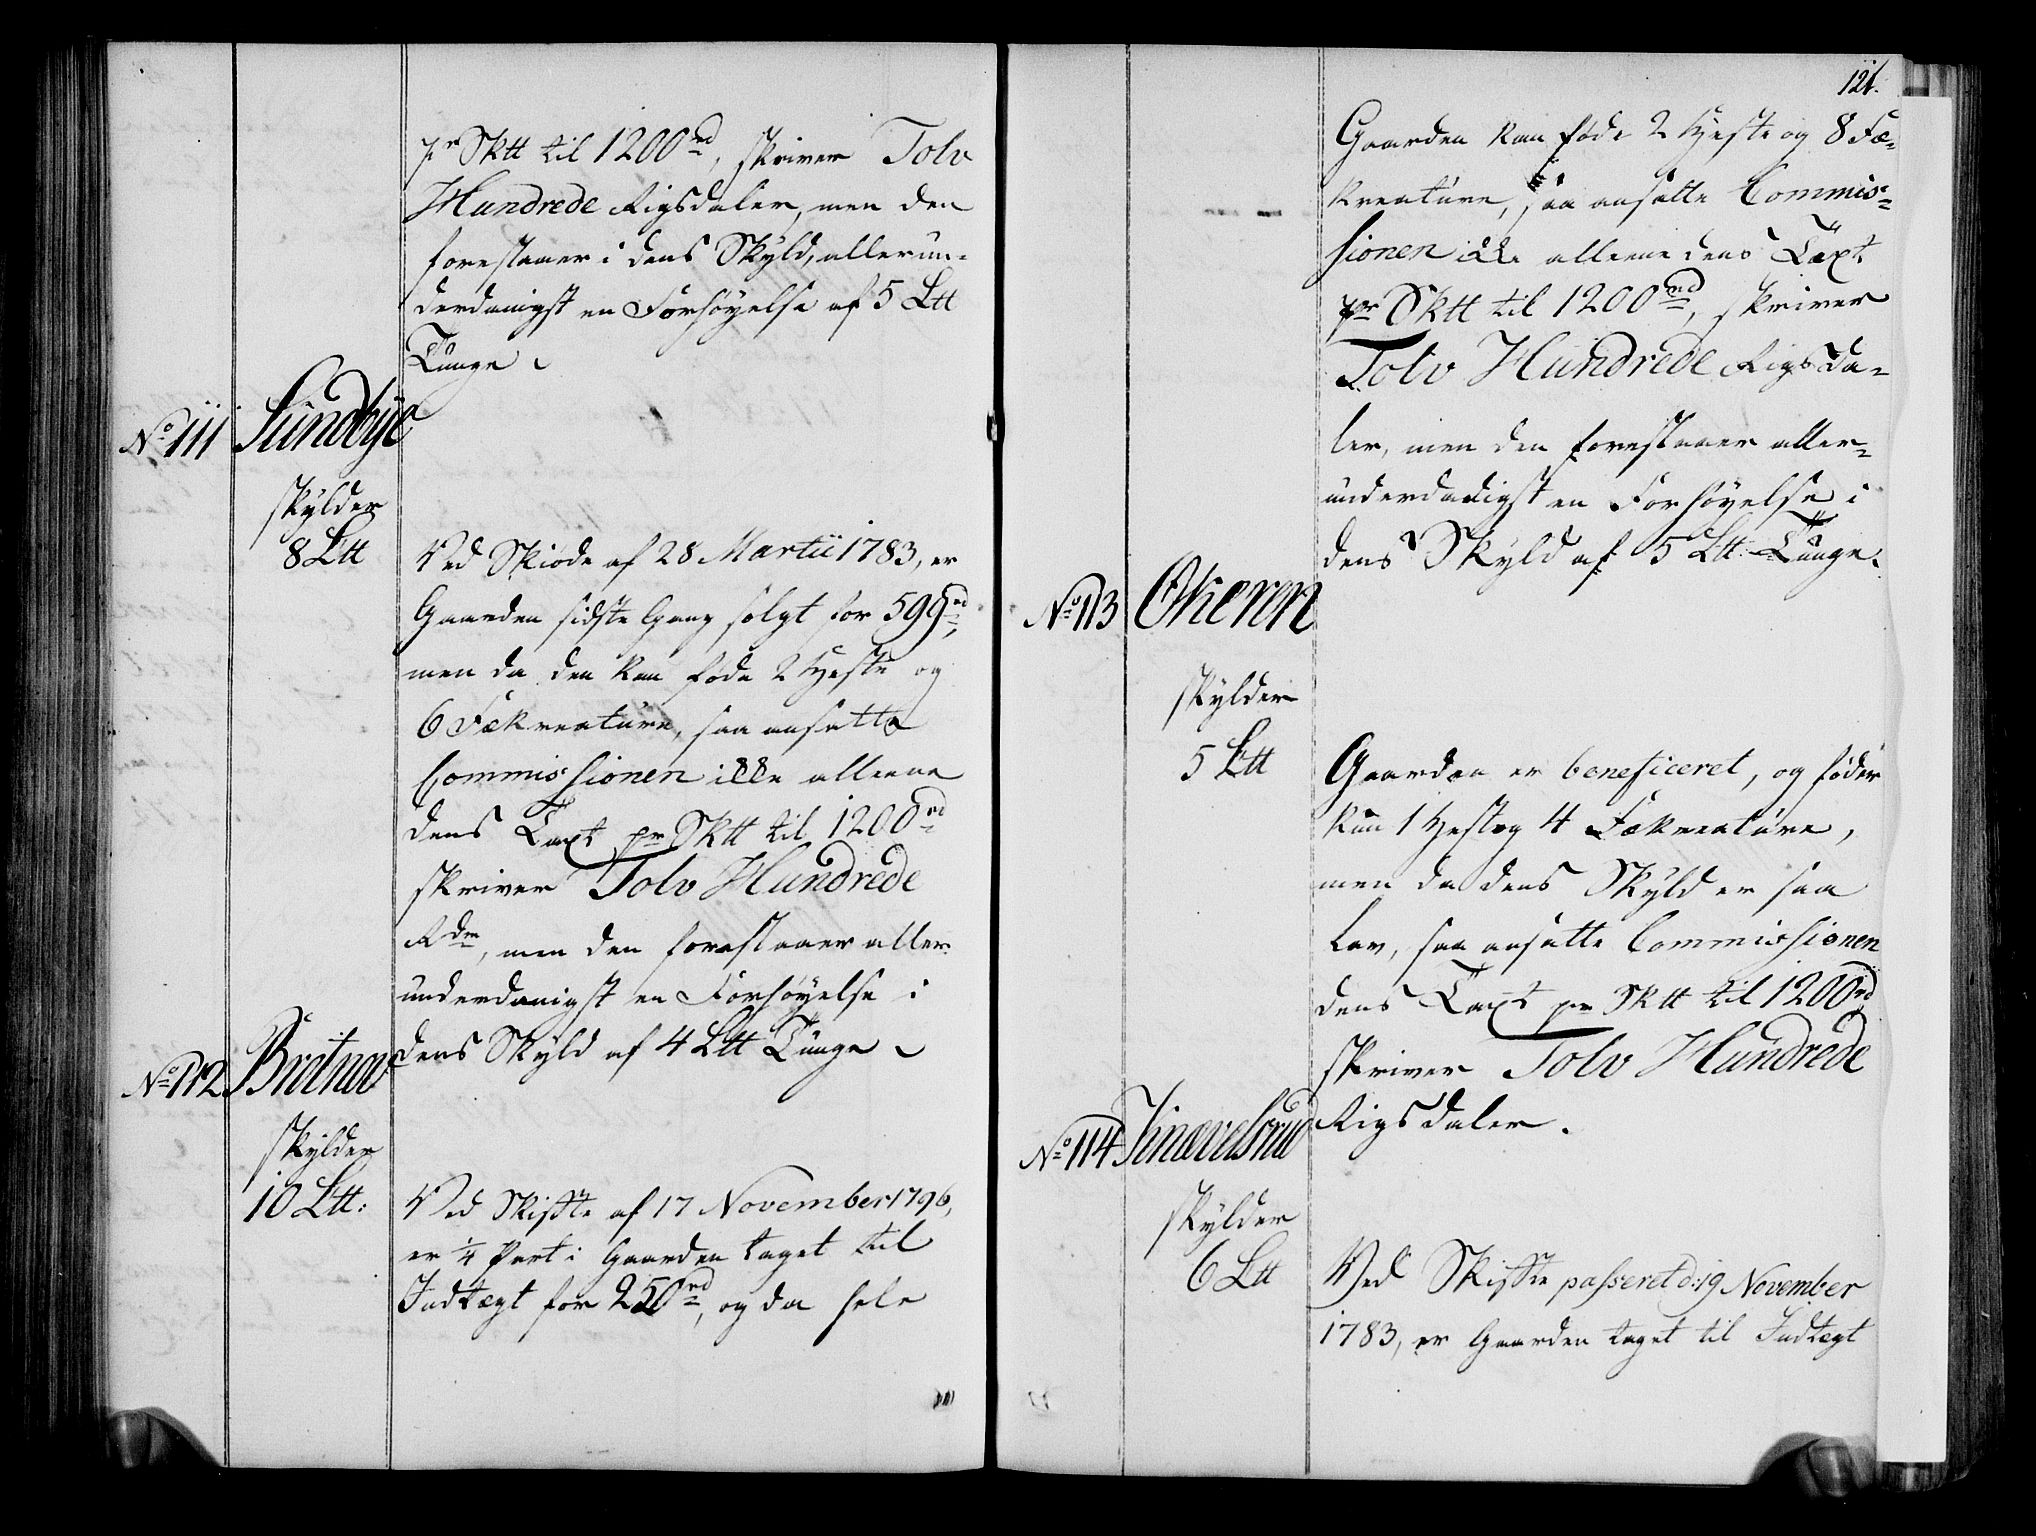 pr Sktt til 1200rd, skriver Tolv
Hundrede Rigsdaler, men den
forestaaer i dens Skyld, allerun-
derdanigst en Forhøyelse af 5 Ltt
Tunge
No 111 Sundbye
skylder
8 Ltt
Ved Skiøde af 28 Martii 1783, er
Gaarden sidste Gang solgt for 599rd,
men da den kan føde 2 Heste og
6 Fækreature, saa ansatte
Commissionen ikke alleene
dens Taxt pr Sktt til 1200rd
skriver Tolv Hundrede
Rdr, men den forestaaer aller
underdanigst en Forhøyelse i
dens Skyld af 4 Ltt Tunge
No 112 Brotnov
skylder
10 Ltt:
Ved Skifte af 17 November 1796,
er 1/4 Part i Gaarden taget til
Indtægt for 250rd, og da hele
121.
Gaarden kan føde 2 Heste og 8 Fæ-
kreature, saa ansatte Commis-
sionen ikke alleene dens Taxt
pr Sktt til 1200rd, skriver
Tolv Hundrede Rigsda-
ler, men den forestaaer aller-
underdanigst en Forhøyelse i
dens Skyld af 5 Ltt Tunge.
No 113 Økeren
skylder
5 Ltt
Gaarden er beneficeret, og føder
kun 1 Hest og 4 Fækreature,
men da dens Skyld er saa
lav, saa ansatte Commissionen
dens Taxt pr Sktt til 1200rd
skriver Tolv Hundrede
Rigsdaler.
No 114 Knævelsrud
skylder
6 Ltt
Ved Skifte passeret d: 19 November
1783, er Gaarden taget til Indtægt